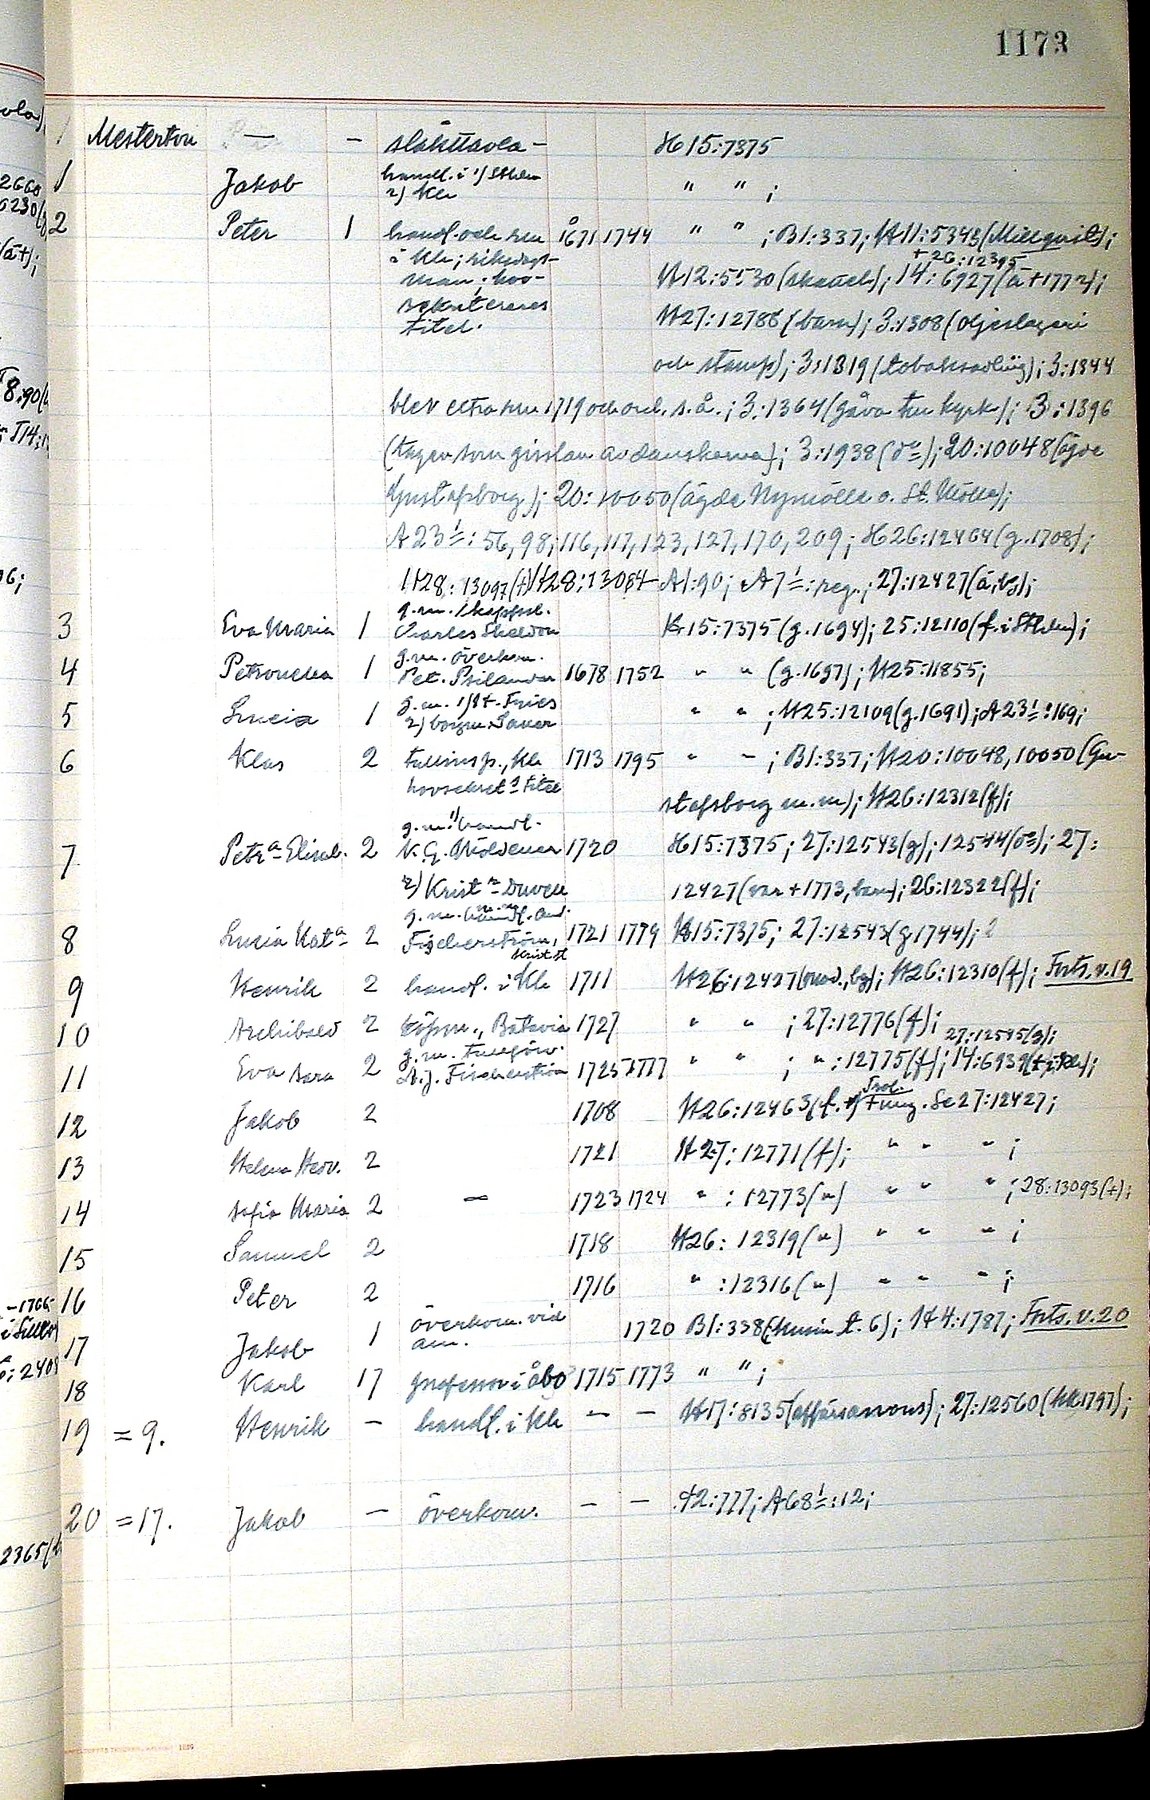 1173
1 Mesterton — - släkttavla - H15:7375
1 Jakob handl. i 1) Sthlm 2) Kla " " ;
2 Peter 1 handl. och rm 1671 1744 " " ; B1:337; H11:5343 (Millqvist);
i Kla; riksdags- + 26:12395
man; hov- H12:5530 ; 14:6927 (ä +1772);
sekreterares H27:12788 (barn); 3:1308 (oljeslageri
titel. och stamp); 3:1319 (tobaksodling); 3:1344
blev extra rm 1719 och ord. s.å.; 3:1364 (gåva t. kyrk.); 3:1396
(tagen som gisslan av danskarna); 3:1938 (do); 20:10048 (ägde
Gustafsborg); 20:10050 (ägde Nymölla o. St. Mölla);
A23 1/2: 56, 98, 116, 117, 123, 127, 170, 209; H26:12464 (g.1708);
H28:13097 (+) H28:13084 A1:90; A7 1/2: reg.; 27:12427 (ä, bg);
g.m. skeppsk.
3 Eva Maria 1 Charles Sheldon H15:7375 (g.1694); 25:12110 (f. i Sthlm);
g.m. överkom.
4 Petronella 1 Pet. Psilander 1678 1752 " " (g.1697); H25:11855;
g.m. 1) Fries
5 Lucia 1 2) borgm. Sauer " " ; H25:12109 (g.1691); A23 1/2:169;
6 Klas 2 tullinsp., Kla 1713 1795 " - ; B1:337; H20:10048, 10050 (Gu-
hovsekret:s titel stafsborg m.m); H26:12312 (f);
g.m. 1) handl.
7 Petra Elisab. 2 N.G. 1720 H15:7375; 27:12543 (g); 12544 (do); 27:
2) Krist:n Duvell 12427 (var +1773, barn); 26:12322 (f);
g.m. handl. And.
8 Lucia Kata 2 Fischerström, 1721 1779 H15:7375; 27:12543 (g 1744);
Krist:st
9 Henrik 2 handl. i Kla 1711 H26:12427 ; H26:12310 (f); Forts. v. 19
10 Archibald 2 köpm., Batavia 1727 " " ; 27:12776 (f);
g.m. 27:12545 (g);
11 Eva Sara 2 A.J. Fischerström 1725 1777 " " ; " : 12775 (f); 14:6939 (+ i Kla);
12 Jakob 2 1708 H26:12463 (f. Se 27:12427;
13 Helena Hedv. 2 1721 H27:12771 (f); " " " ;
14 Sofia Maria 2 — 1723 1724 " : 12773 (") " " " ; 28:13093 (+);
15 Samuel 2 1718 H26:12319 (") " " " ;
16 Peter 2 1716 " : 12316 (") " " " ;
17 Jakob 1 överkom. vid am. 1720 B1:338 (kusin t. 6); H4:1787; Forts. v. 20
18 Karl 17 professor i Åbo 1715 1773 " " ;
19 = 9. Henrik - handl. i Kla — — H17:8135 (affärsannons); 27:12560 (kk 1797);
20 = 17. Jakob - överkom. — — H2:777; A68 1/2:12;